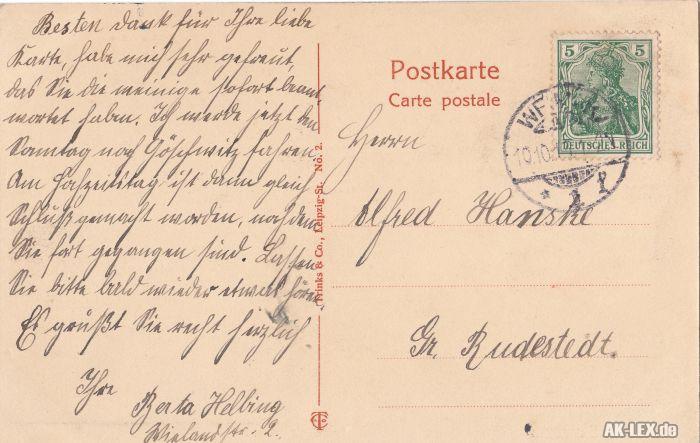 Besten dank für Ihre liebe
Karte, habe mich sehr gefreut,
das Sie die meinige sofort beant,
wortet haben. Ich werde jetzt den
Sonntag nach Göschwitz fahren.
Am Hochzeitstag ist dann gleich
Schluß gemacht worden, nachdem
Sie fort gegangen sind. Lassen
Sie bitte bald wieder etwas hören
Es grüßt Sie recht herzlich
Ihre
Berta Helbing
Wielandstr. 2.
Trinks & Co., Leipzig-St. No. 2.
Postkarte
Carte postale
5 5
DEUTSCHES REICH
10.10.
Herrn
Alfred Hanske
Gr. Rudestedt.
AK-LEX.de